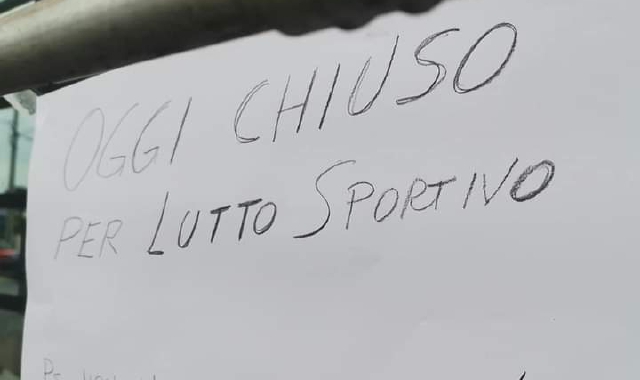 OGGI CHIUSO
PER LUTTO SPORTIVO